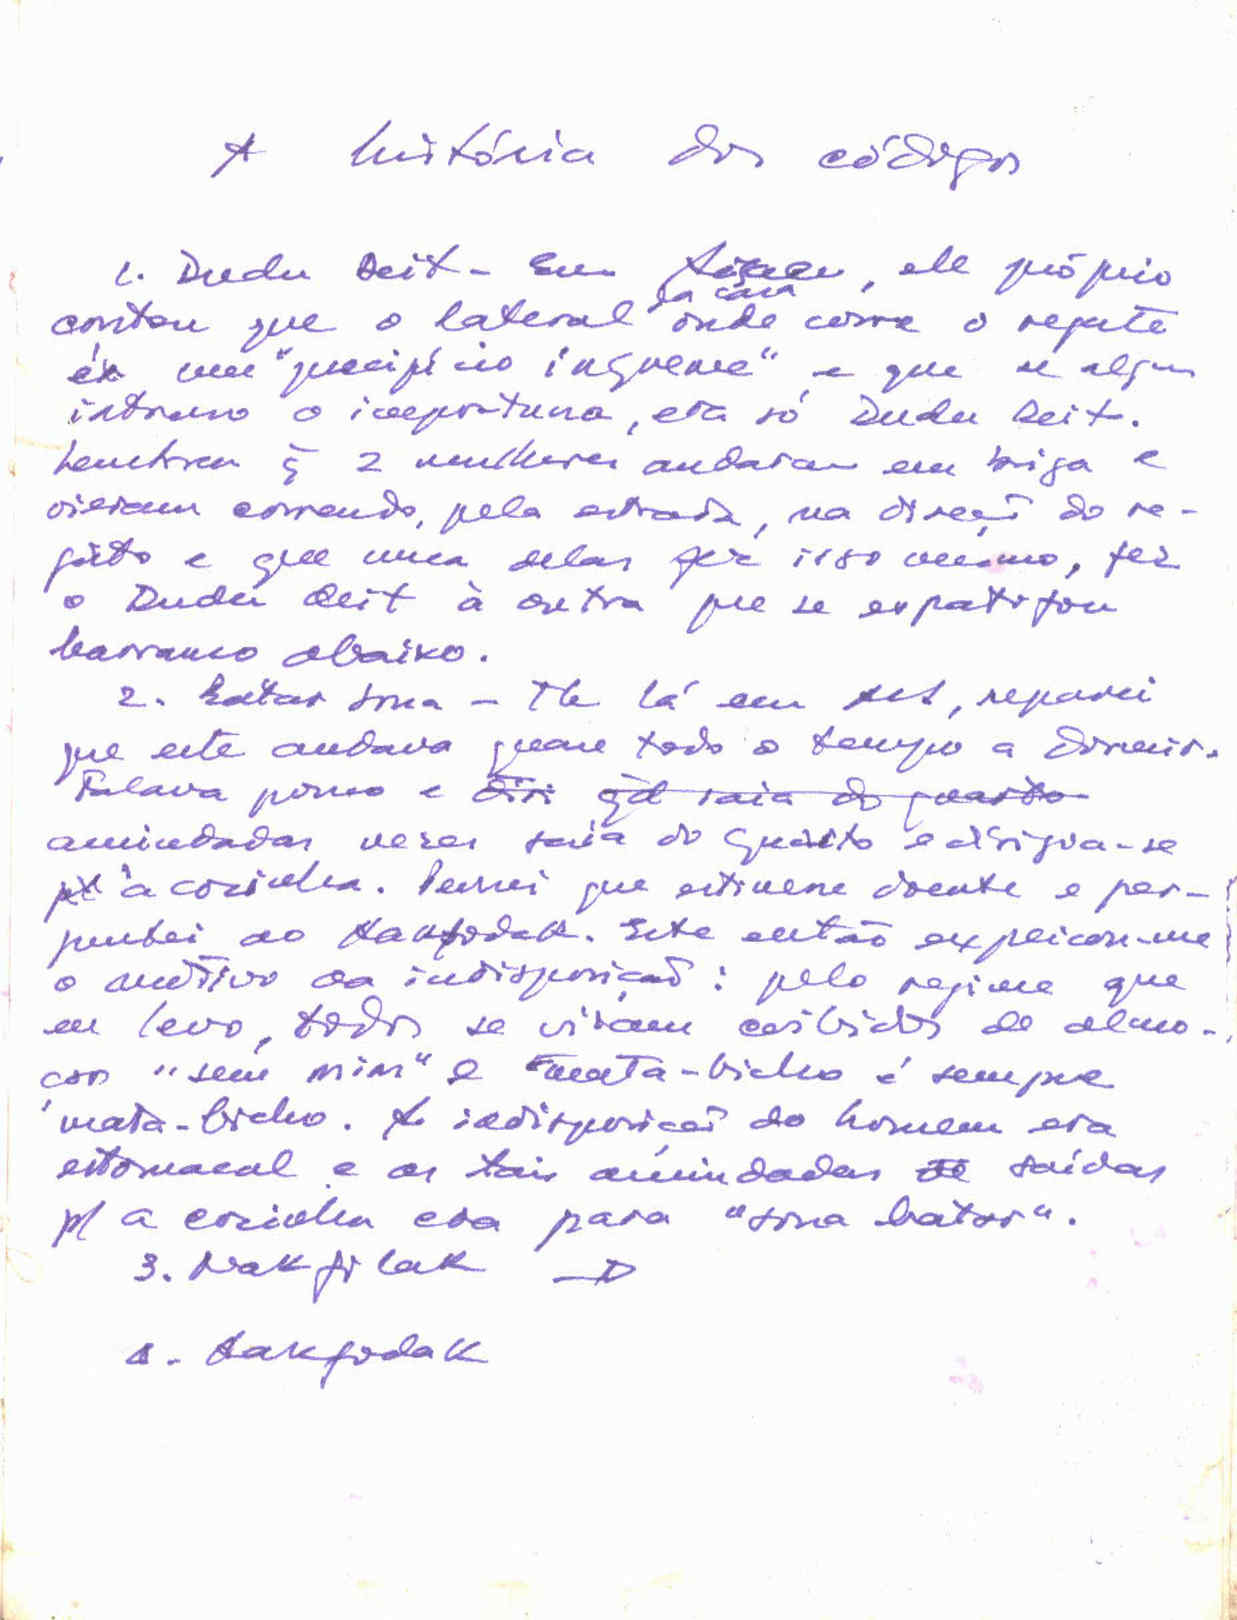 A história dos códigos
1. Dudu Deit - Em, ele próprio
contou que o lateral da casa onde corre o regato
é um "precipício íngreme" e que se algum
intruso o importuna, era só Dudu Deit.
Lembrou q̃ 2 mulheres andaram em briga e
vieram correndo, pela estrada, na direcç̃ do re-
gato e que uma delas fez isso mesmo, fez
o Dudu Deit à outra que se espatifou
barranco abaixo.
2. Batar sona - Tb lá em, reparei
que este andava quase todo o tempo a dormir.
Falava pouco e qd saia do quarto
amiudadas vezes saía do quarto e dirigia-se
p/ à cozinha. Pensei que estivesse doente e per-
guntei ao Nakfodak. Este então explicou-me
o motivo da indisposicão: pelo regime que
eu levo, todos se viram coibidos de almo-
çar "sem mim" e "mata-bicho é sempre
mata-bicho. A indisposicão do homem era
estomacal e as tais amiudadas saídas
p/ a cozinha era para "sona batar".
3. Nakfilak
4. Nakfodak